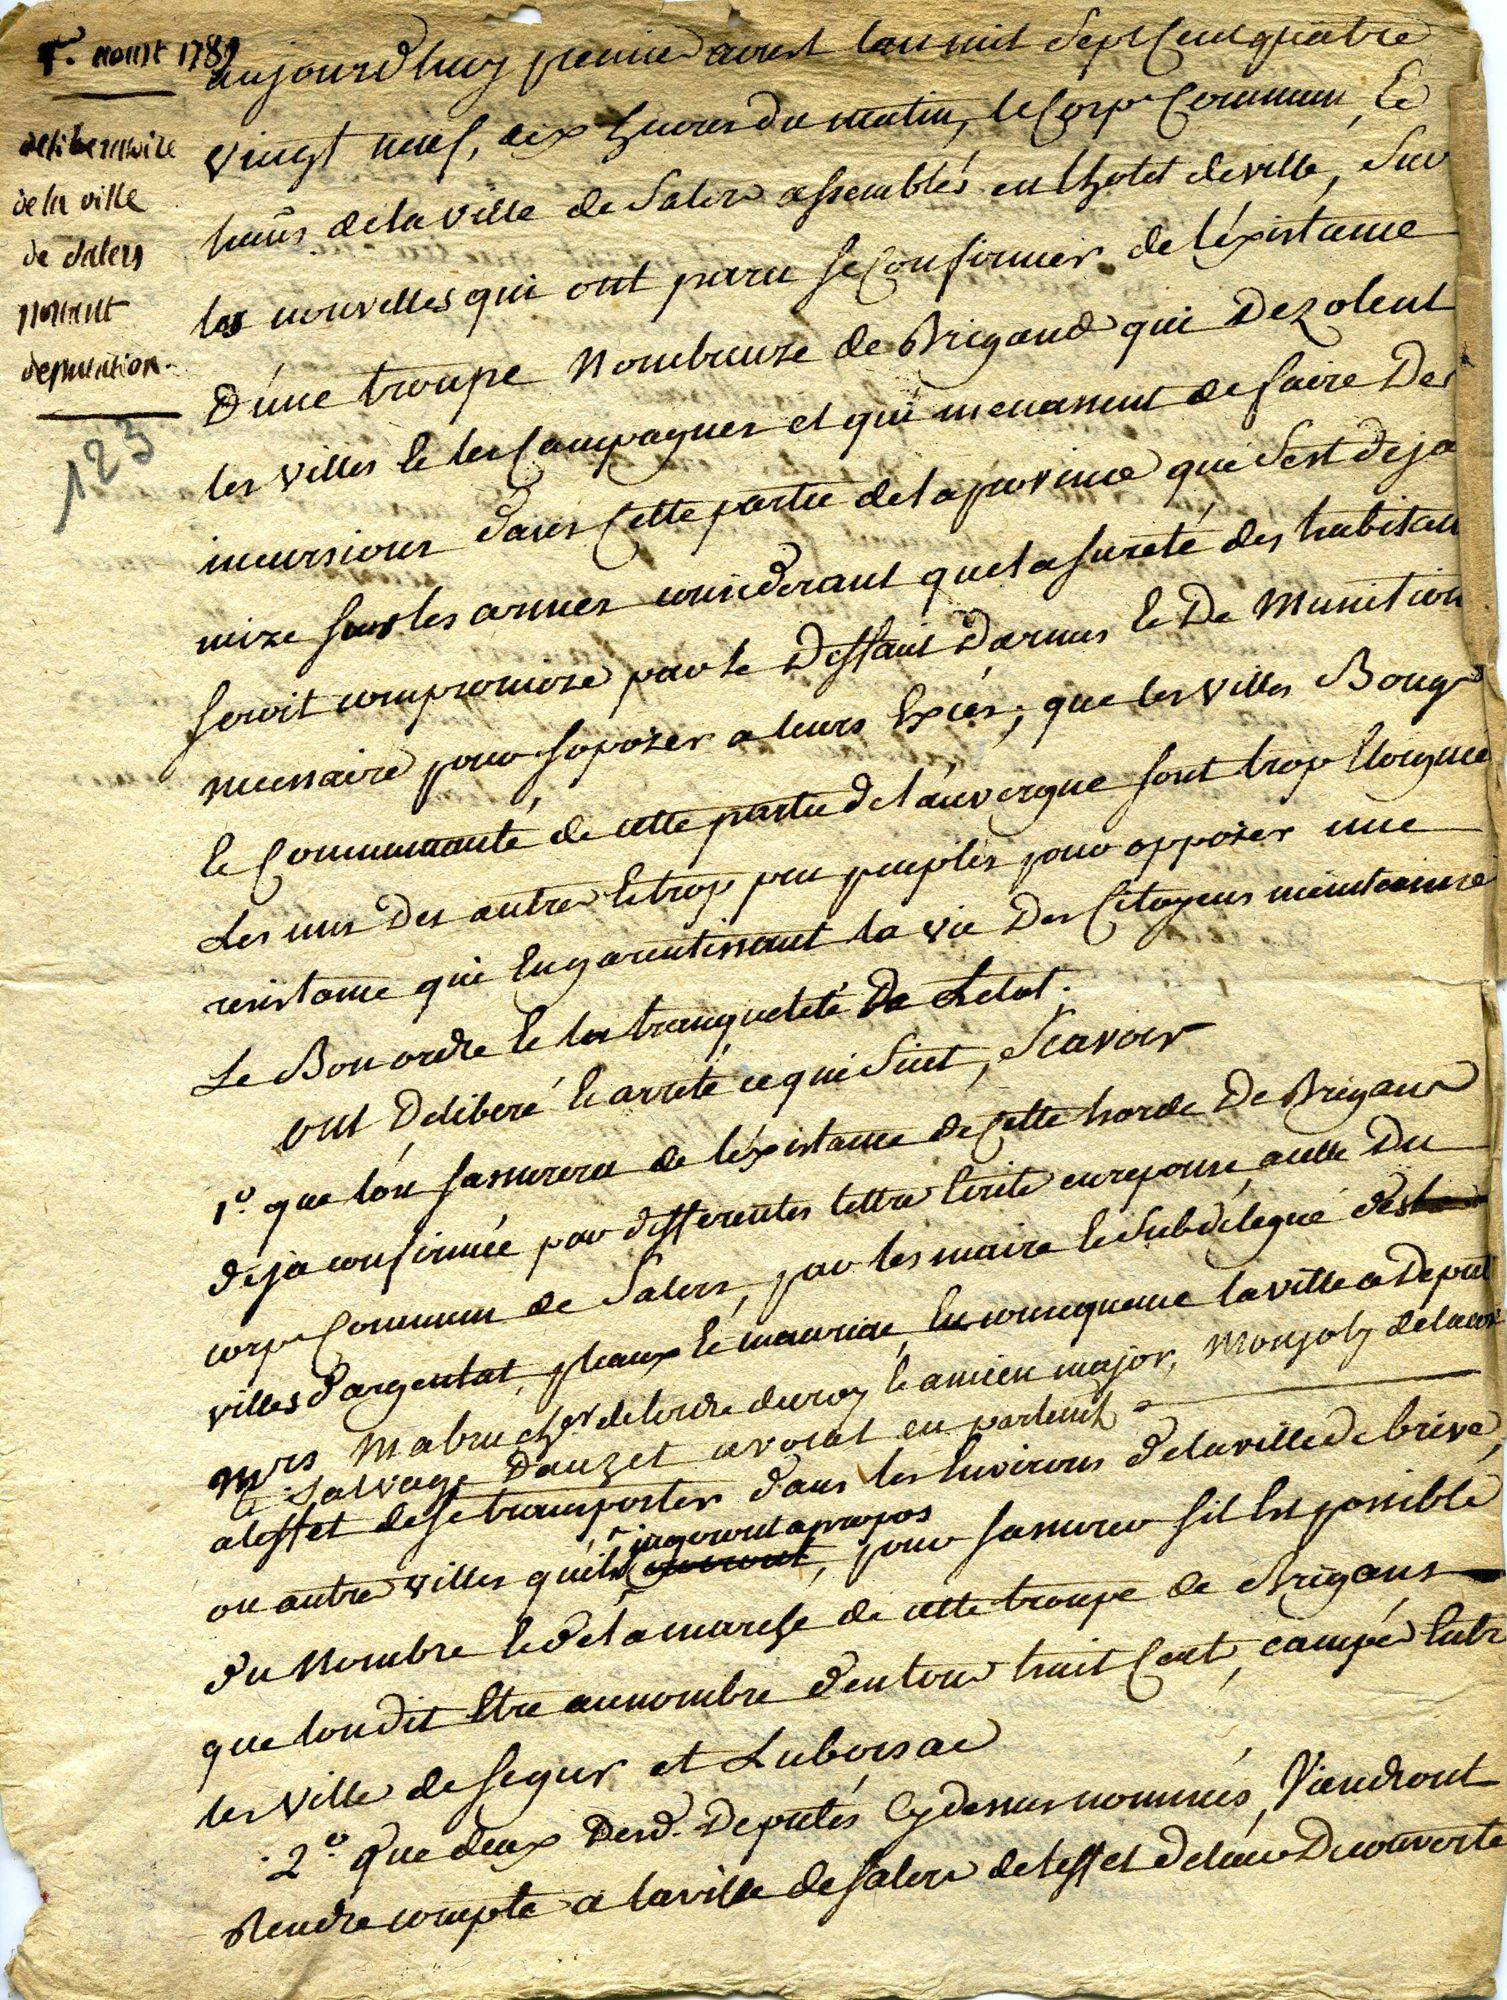 1er. aoust 1789
deliberatoire
de la ville
de Salers
portant
deputation.
123
aujourdhuy premier aoust lan mil Sept Cent quatre
vingt neuf, dix heures du matin, le Corps Commun, Le
habts de la ville de Salers assemblés en lhotel de ville, Sur
les nouvelles qui ont paru se Confirmer de léxistance
d'une troupe Nombreuse de Brigand qui Dezolent
les villes Et les Campagnes et qui menassent de faire Des
incursions dans Cette partie de la province qui Sest deja
mize sous les armes considerant que la sureté des habitan
seroit compromize par le Deffaut Darmes Et De Munition
necessaire pour soposer a leurs Exces; que les villes Bourgs
Et Communauté de cette partie de l'auvergne sont trop Eloignée
Les uns Des autres Et trop peu peuplés pour opposer une
resistance qui En garentissant la vie Des Citoyens maintienne
Le Bon ordre Et la tranquileté De Letat.
ont Deliberé Et arrêté ce qui Suit, Scavoir
1.° que lón sassurera de léxistance de Cette horde De Brigans
deja confirmée par differentes lettre Ecrite en reponse a celle Du
corps Commun de Salers, par les maire Et Subdélegué des
villes d'argentat, pleaux Et mauriac, En consequence la ville a Deputé
Mrs Mabru cher de lordre du roy Et ancien major, Monjoly de lacoste
Et Salvage Dauzet avocat en parlemt
a leffet de se transporter dans les Environs de la ville de brive,
jugeront apropos
ou autre villes quéils , pour sassurer sil Est possible
du Nombre Et de la marche de cette troupe de Brigans
que lon dit Etre au nombre denviron huit Cent, campés Entre
les ville de Segur et Lubersac
2.° Que deux Desd. Deputés Cy dessus nommés, Viendront
Rendre compte a la ville de Salers de leffet de leur Decouverte